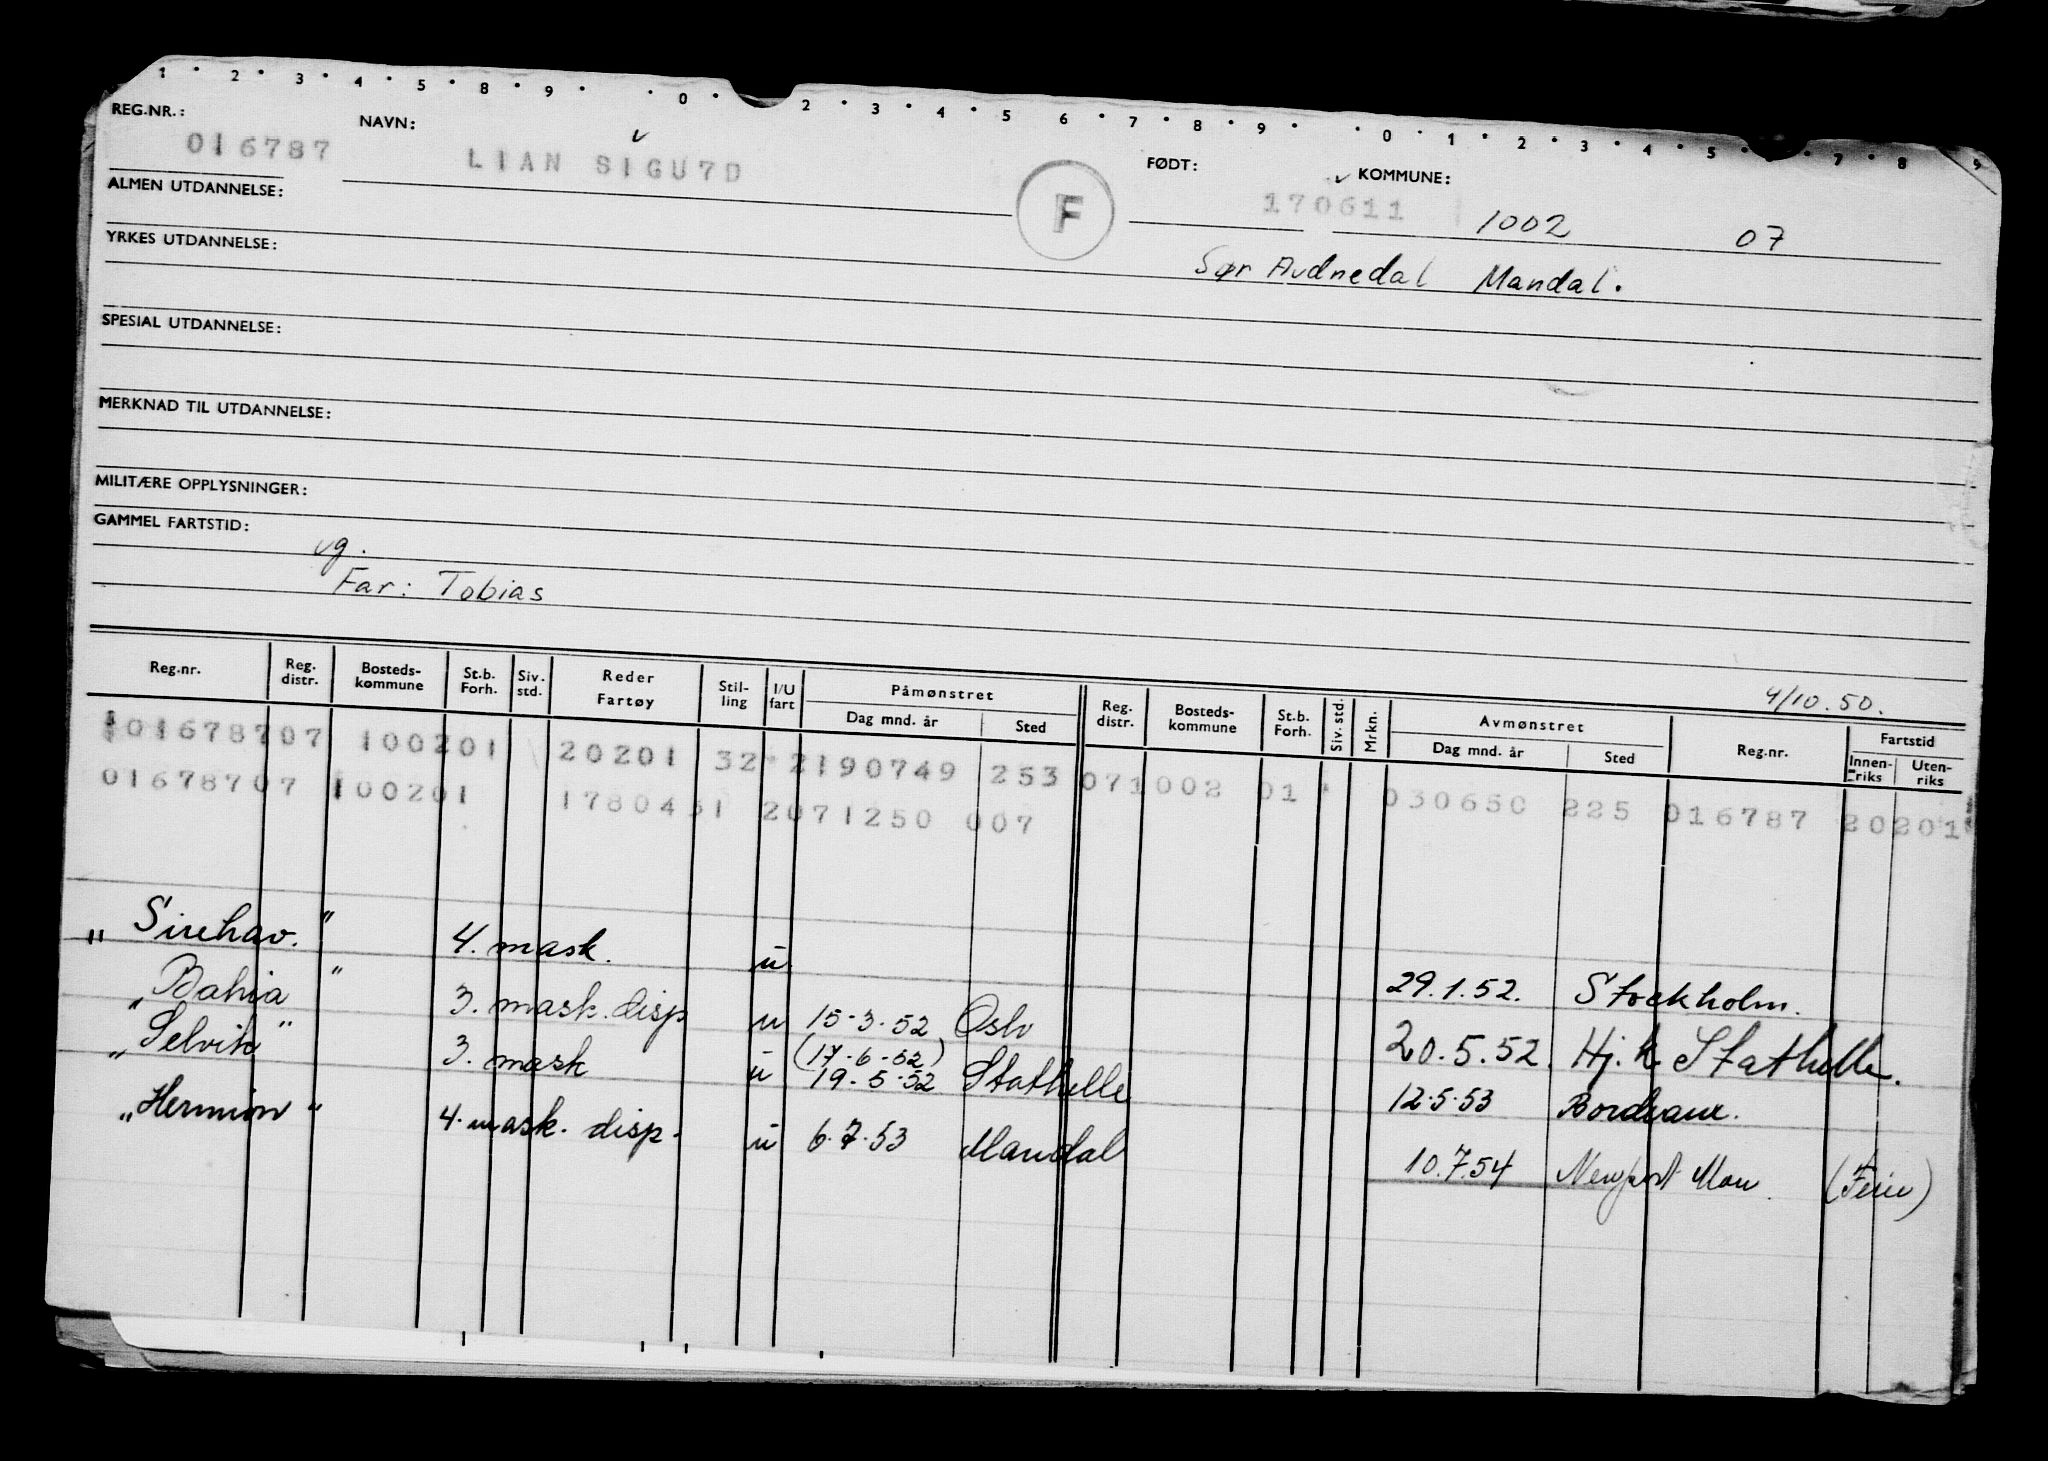 1 · 2 · 3 · 4 · 5 · 8 · 9 · · 0 · 2 · 3 · 4 · 5 6 · 7 · 8 · 9 · · 0 · 1 · 2 · 3 · 4 · 5 · 7 · 8 9
REG.NR.: NAVN: FØDT: KOMMUNE:
016787 LIAN SIGU7D F 170611 1002 07
ALMEN UTDANNELSE:
YRKES UTDANNELSE:
Sør Audnedal Mandal.
SPESIAL UTDANNELSE:
MERKNAD TIL UTDANNELSE:
MILITÆRE OPPLYSNINGER:
GAMMEL FARTSTID:
vg.
Far: Tobias
4/10.50.
Reg.nr. Reg. distr. Bosteds- kommune St.b. Forh. Siv. std. Reder Fartøy Stil- ling I/U fart Påmønstret Dag mnd. år Sted Reg. distr. Bosteds- kommune St.b. Forh. Siv. std. Mrkn. Avmønstret Dag mnd. år Sted Reg.nr. Fartstid Innen- riks Uten- riks
01678707 100201 20201 32 2190749 253 071002 01 030650 225 016787 20201
01678707 100201 1780431 2071250 007
"Sirehav." 4. mask. u 29.1.52. Stockholm.
"Bahia" 3. mask. disp u 15-3-52 Oslo 20.5.52. Hj.k Stathelle.
"Selvik" 3. mask u (17-6-52) 19-5-52 Stathelle 12.5.53 Bordeaux.
"Hermion" 4. mask. disp. u 6.7.53 Mandal 10.7.54 Newport Mon. (Ferie)